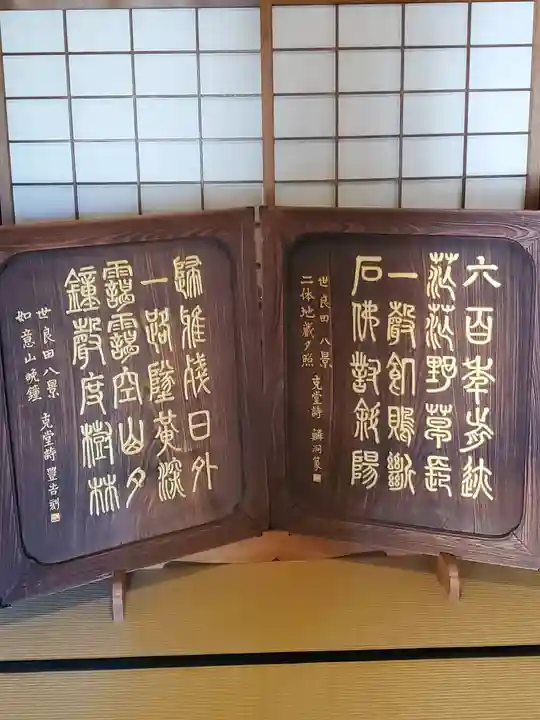 六百年前迹
茫茫野草長
一聲飢斷
石佛對斜陽
世良田八景
二体地蔵夕照 克堂詩 篆
歸雅殘日外
一路墜黄深
靄靄空山夕
鐘聲度樹林
世良田八景
如意山晩鐘 克堂詩 豊吉刻